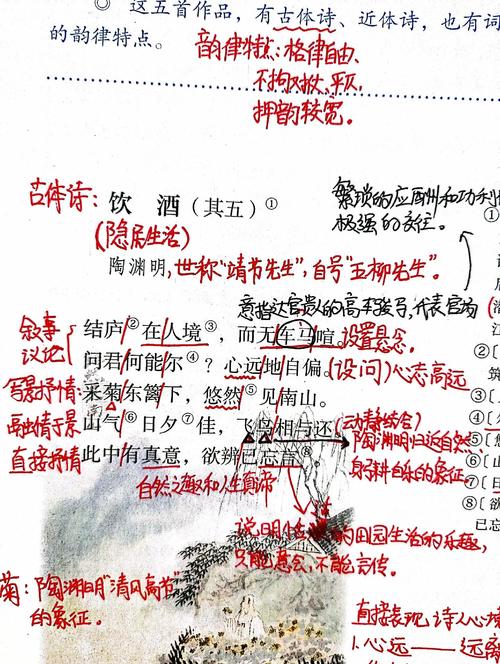 ◎ 这五首作品，有古体诗、近体诗，也有词
的韵律特点。
韵律特点：格律自由、
不拘对仗、平仄，
押韵较宽。
古体诗：饮 酒（其五）①
(隐居生活)
繁琐的应酬和功利
极强的交往。
陶渊明，世称"靖节先生"，自号"五柳先生"。
意指达官贵人的高车骏马，代表官场
叙事
议论
结庐②在人境③，而无车马喧。设置悬念。
问君何能尔④？心远地自偏。(设问)心态高远
写景抒情：采菊东篱下，悠然⑤见南山。
融情于景 山气⑥日夕⑦佳，飞鸟相与还。(动静结合)
陶渊明归返自然、
直接抒情 此中有真意，欲辨已忘言⑧
自然之趣和人生真谛
的象征。
说明
的田园生活的乐趣，
只能意会，不能言传。
菊：陶渊明"清风高节"
的象征。
直接表现 诗人心境
1.心远——远离